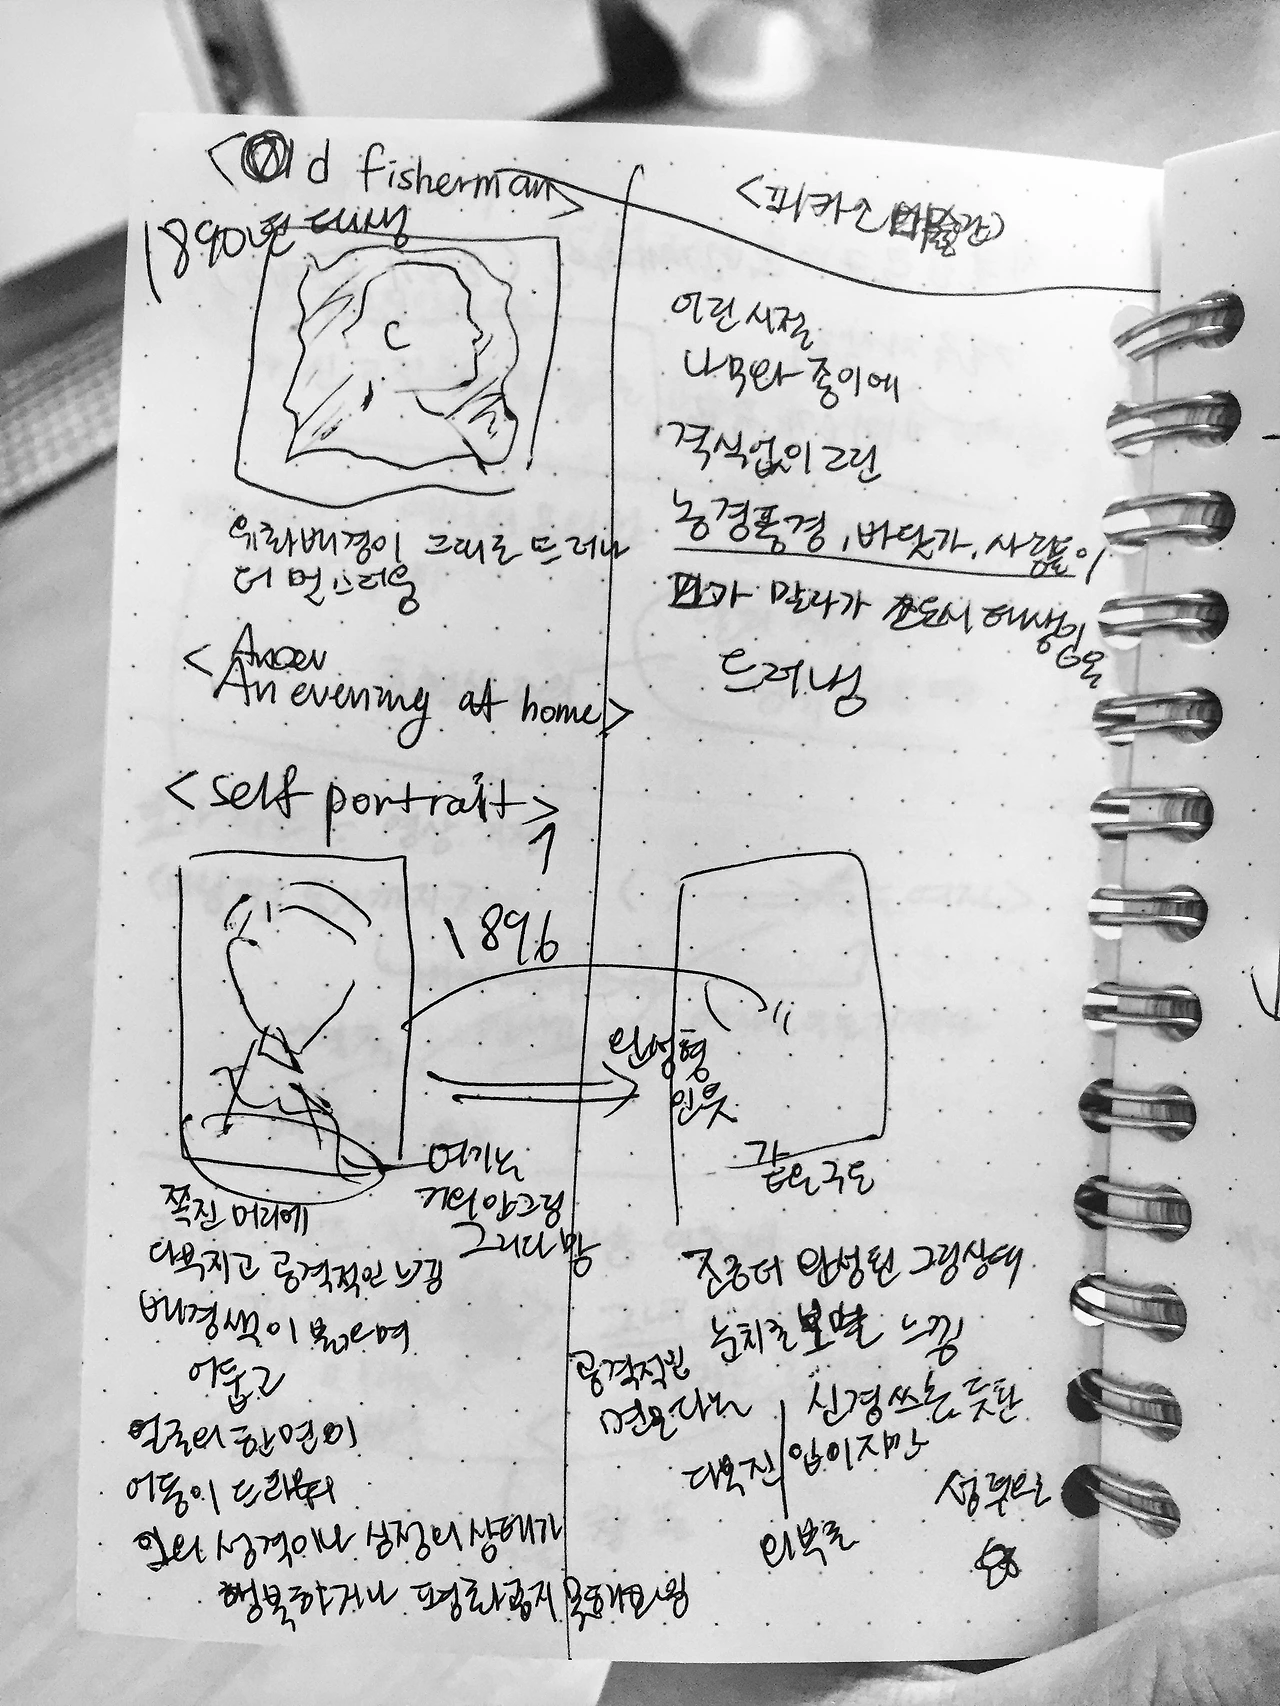 <Old fisherman>
1890년 태생
유화배경이 그대로 드러나
더 멋스러움
<An evening at home>
<self portrait>
1896
여기는
거의 안그림
그리다 맘
쪽진 머리에
다부지고 공격적인 느낌
배경색이 붉으며
어둡고
얼굴의 한 면이
어둠이 드리워
성격이나 심정의 상태가
행복하거나 평화롭지 못해보임
<피카소 박물관>
어린시절
나무와 종이에
격식없이 그린
농경풍경, 바닷가, 사람들이
말라가 도시 태생임을
드러냄
완성형
인듯
좀더 완성된 그림상태
눈치를 느낌
공격적인
면보다는
신경쓰는 듯한
다부진 입이지만
의복도